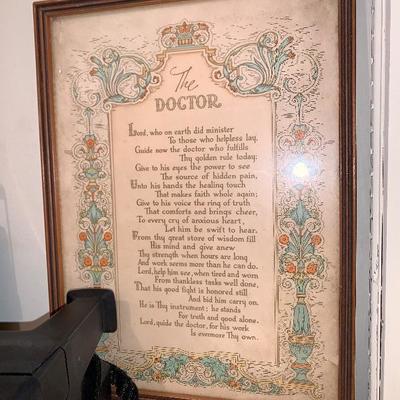 The
DOCTOR
Lord, who on earth did minister
To those who helpless lay,
Guide now the doctor who fulfills
Thy golden rule today;
Give to his eyes the power to see
The source of hidden pain,
Unto his hands the healing touch
That makes faith whole again;
Give to his voice the ring of truth
That comforts and brings cheer,
To every cry of anxious heart,
Let him be swift to hear.
From thy great store of wisdom fill
His mind and give anew
Thy strength when hours are long
And work seems more than he can do.
Lord, help him see, when tired and worn
From thankless tasks well done,
That his good fight is honored still
And bid him carry on.
He is Thy instrument; he stands
For truth and good alone,
Lord, guide the doctor, for his work
Is evermore Thy own.